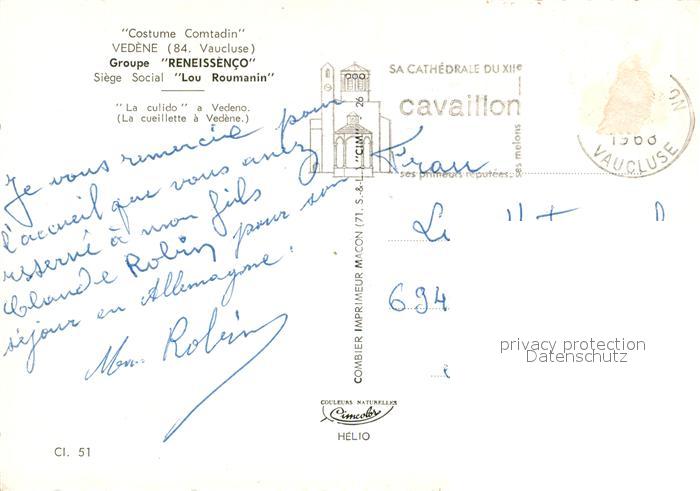 "Costume Comtadin"
VEDÈNE (84. Vaucluse)
Groupe "RENEISSÈNÇO"
Siège Social "Lou Roumanin"
"La culido" a Vedeno.
(La cueillette à Vedène.)
Je vous remercie pour
l'accueil que vous avez
réservé à mon fils
Claude Robin pour son
séjour en Allemagne.
Robin
Cl. 51
COMBIER IMPRIMEUR MACON (71. S.-&-L.) "CIM"
26
SA CATHÉDRALE DU XIIe
cavaillon
ses primeurs réputées, ses melons
ON
1968
VAUCLUSE
Frau
694
privacy protection
Datenschutz
COULEURS NATURELLES
Cimcolor
HÉLIO